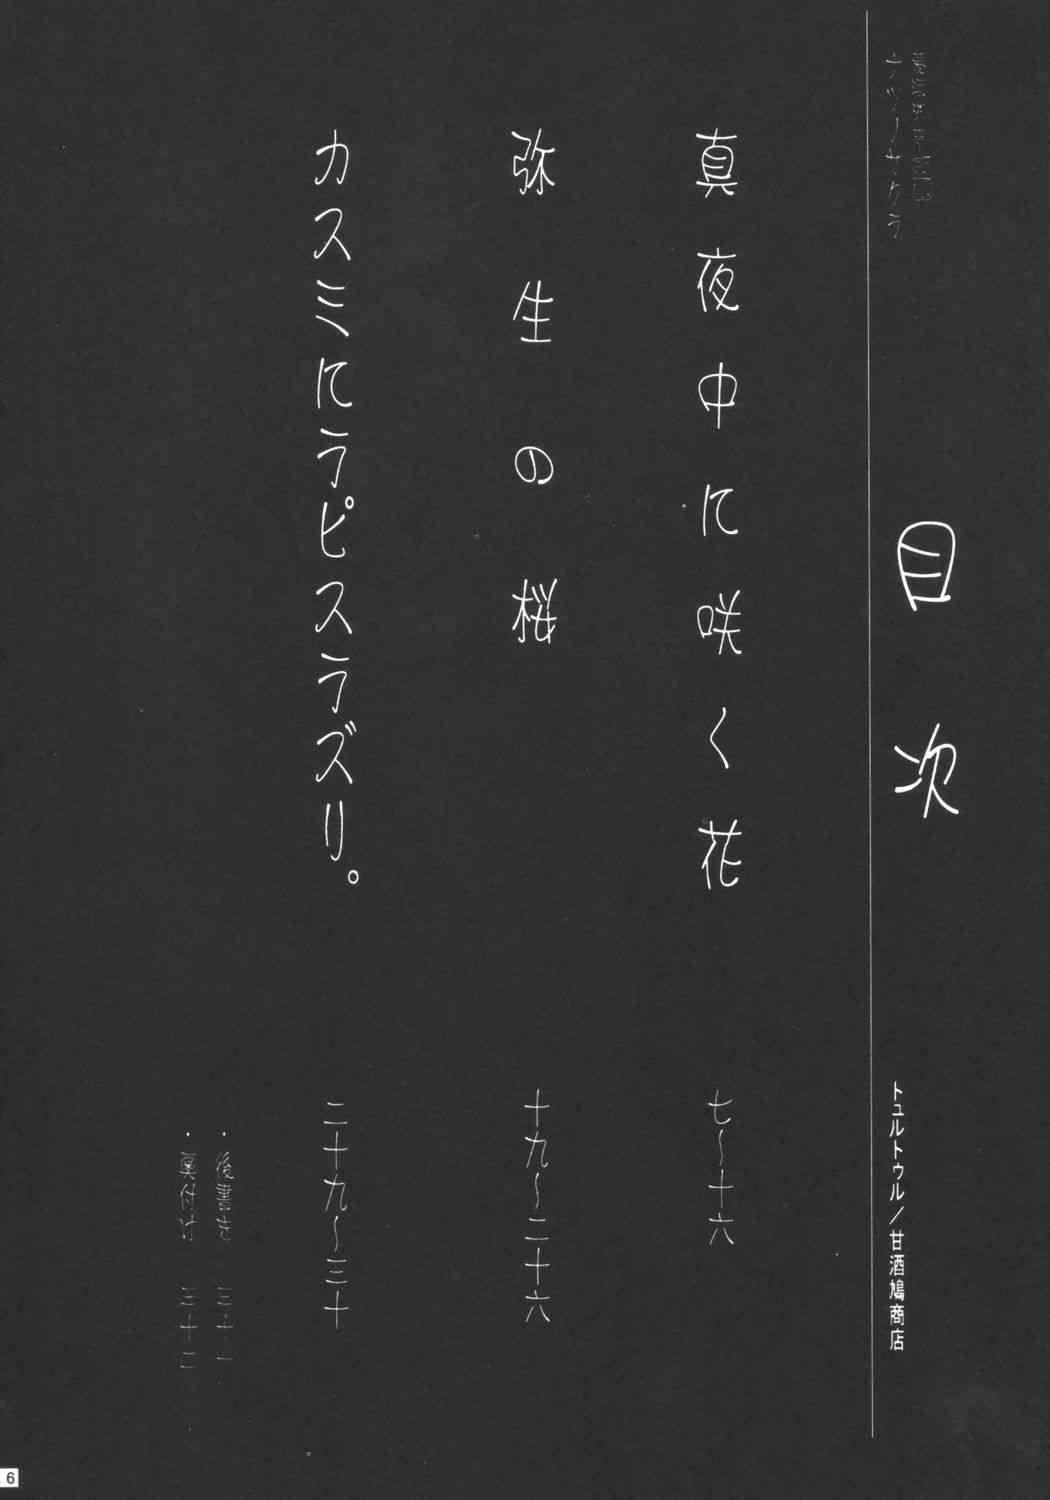 目次
トュルトゥル／甘酒鳩商店
真夜中に咲く花
七～十六
弥生の桜
十九～二十六
カスミにラピスラズリ。
二十九～三十
・後書き 三十一
・奥付け 三十二
6